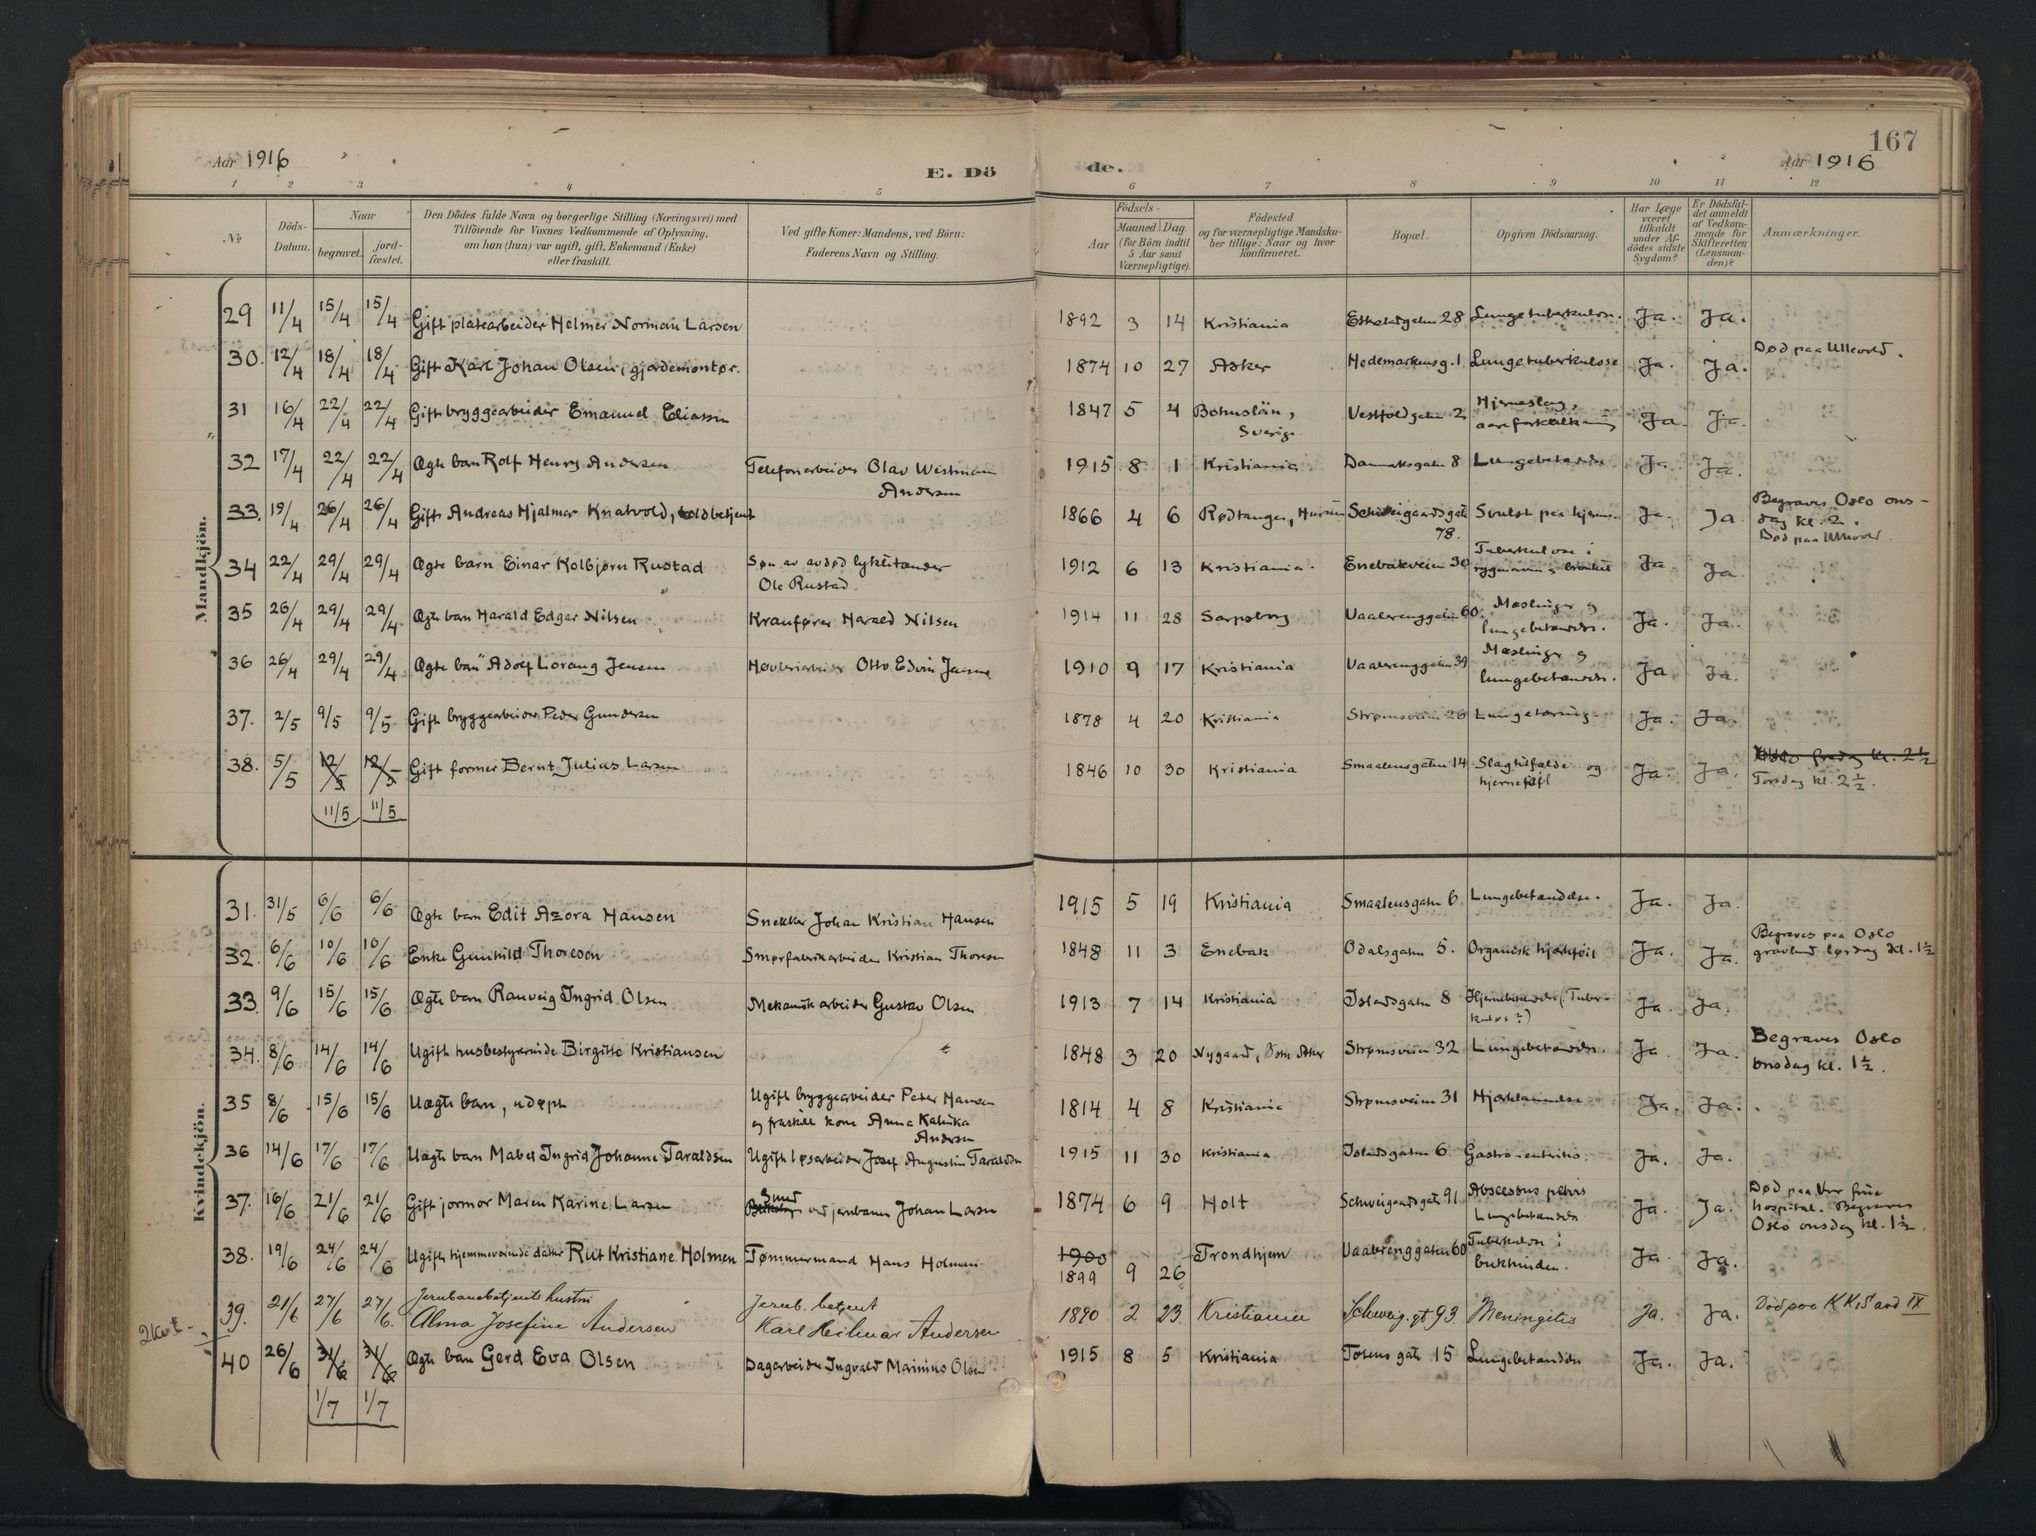 167
Aar 1916
E. Dö
de.
Aar 1916
1 2 3 4 5 6 7 8 9 10 11 12
№
Döds-
Datum.
Naar
begravet.
jord-
fæstet.
Den Dödes fulde Navn og borgerlige Stilling (Næringsvei) med
Tilföiende for Voxnes Vedkommende af Oplysning,
om han (hun) var ugift, gift, Enkemand (Enke)
eller fraskilt.
Ved gifte Koner: Mandens, ved Börn:
Faderens Navn og Stilling.
Födsels-
Aar
Maaned.
Dag.
(for Börn indtil
5 Aar samt
Værnepligtige).
Födested
og for værnepligtige Mandska-
ber tillige: Naar og hvor
konfirmeret.
Bopæl.
Opgiven Dödsaarsag.
Har Læge
været
tilkaldt
under Af-
dödes sidste
Sygdom?
Er Dödsfal-
det anmeldt
af Vedkom-
mende for
Skifteretten
(Lensman-
den)?
Anmærkninger.
Mandkjön.
29 11/4 15/4 15/4 Gift platearbeider Helmer Norman Larsen 1892 3 14 Kristiania 28 Lungetuberkulose. Ja. Ja.
30. 12/4 18/4 18/4 Gift Karl Johan Olsen, gjørdemontør. 1874 10 27 Asker Hedemarkensg. 1 Lungetuberkulose Ja. Ja. Død paa Ullevold.
31 16/4 22/4 22/4 Gift bryggearbeider Emanuel Eliassen 1847 5 4 Bohuslän,
Sverige Vestfoldgaten 2 Hjerneslag,
aareforkalkning Ja. Ja.
32 17/4 22/4 22/4 Ægte barn Rolf Henry Andersen Telefonarbeider Olav Westman
Andersen 1915 8 1 Kristiania Danmarksgaten 8 Lungebetændelse Ja Ja.
33. 19/4 26/4 26/4 Gift Andreas Hjalmar Knatvold, toldbetjent 1866 4 6 Rødtangen, Hurum Schweigaardsgate
78. Svulst paa hjernen. Ja. Ja. Begraves Oslo ons-
dag kl. 2.
Død paa Ullevold.
34 22/4 29/4 29/4 Ægte barn Einar Kolbjørn Rustad Søn av avdød lyktetænder
Ole Rustad. 1912 6 13 Kristiania. Enebakveien 30 Tuberkulose i
Ja Ja
35 26/4 29/4 29/4 Ægte barn Harald Edgar Nilsen Kranfører Harald Nilsen 1914 11 28 Sarpsborg Vaalerenggaten 60. Mæslinger og
lungebetændelse. Ja. Ja.
36 26/4 29/4 29/4 Ægte barn Adolf Lorang Jensen Høvleriarbeider Otto Edvin Jensen 1910 9 17 Kristiania Vaalerenggaten 39 Mæslinger og
lungebetændelse. Ja Ja.
37. 2/5 9/5 9/5 Gift bryggearbeider Peder Gundersen 1878 4 20 Kristiania Strømsveien 26 Lungetæring. Ja. Ja.
38. 5/5 12/5 12/5 Gift former Bernt Julius Larsen 1846 10 30 Kristiania Smaalensgaten 14 Slagtilfælde og
hjertefeil Ja. Ja. Oslo fredag kl. 2½
Torsdag kl. 2½.
11/5 11/5
Kvindekjön.
31. 31/5 6/6 6/6 Ægte barn Edit Azora Hansen Snekker Johan Kristian Hansen 1915 5 19 Kristiania Smaalensgaten 6. Lungebetændelse. Ja. Ja.
32. 6/6 10/6 10/6 Enke Gunhild Thoresen Smørfabrikarbeider Kristian Thoresen 1848 11 3 Enebak Odalsgaten 5. Organisk hjertefeil Ja. Ja. Begraves paa Oslo
gravlund lørdag kl. 1½
33. 9/6 15/6 15/6 Ægte barn Ranveig Ingrid Olsen Mekanisk arbeider Gustav Olsen 1913 7 14 Kristiania Islandsgaten 8 Hjernebetændelse (Tuber-
kulos?) Ja. Ja.
34. 8/6 14/6 14/6 Ugift husbestyrerinde Birgitte Kristiansen 1848 3 20 Nygaard, Østre Aker Strømsveien 32 Lungebetændelse. Ja. Ja. Begraves Oslo
onsdag kl. 1½.
35 8/6 15/6 15/6 Uægte barn, udøpt Ugift bryggearbeider Peter Hansen
og fraskilt kone Anna Katinka
Andersen 1814 4 8 Kristiania Strømsveien 31 Ja. Ja.
36 14/6 17/6 17/6 Uægte barn Mabel Ingrid Johanne Taraldsen Ugift løsarbeider Josef Augustin Taraldsen 1915 11 30 Kristiania Islandsgaten 6 Gastro-enteritis. Ja. Ja.
37. 16/6 21/6 21/6 Gift jormor Maren Karine Larsen Smed
ved jernbanen Johan Larsen 1874 6 9 Holt Schweigaardsgate 91 Abscessus pelvis
Lungebetændelse Ja. Ja. Død paa Vor frue
hospital. Begraves
Oslo onsdag kl. 1½.
38. 19/6 24/6 24/6 Ugift hjemmeværende datter Rut Kristiane Holmen Tømmermand Hans Holmen 1900
1899 9 26 Trondhjem Vaalerenggaten 60 Tuberkulose i
bukhinden. Ja Ja.
39. 21/6 27/6 27/6. Jernbanebetjents hustru
Alma Josefine Andersen Jernb. betjent
Karl Hilmar Andersen 1890 2 23 Kristiania Schweig. gt 93 Meningitis Ja. Ja. Død paa KKS avd IX
40 26/6 31/6 31/6 Ægte barn Gerd Eva Olsen Dagarbeider Ingvald Mainius Olsen 1915 8 5 Kristiania Totens gate 15 Lungebetændelse Ja. Ja.
1/7 1/7